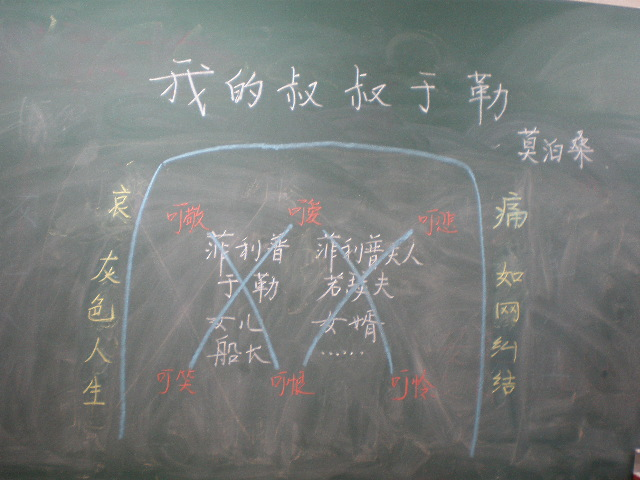 我的叔叔于勒
莫泊桑
哀
灰色人生
可敬
可爱
可悲
菲利普
于勒
女儿
船长
菲利普夫人
若瑟夫
女婿
……
可笑
可恨
可怜
痛
如网纠结